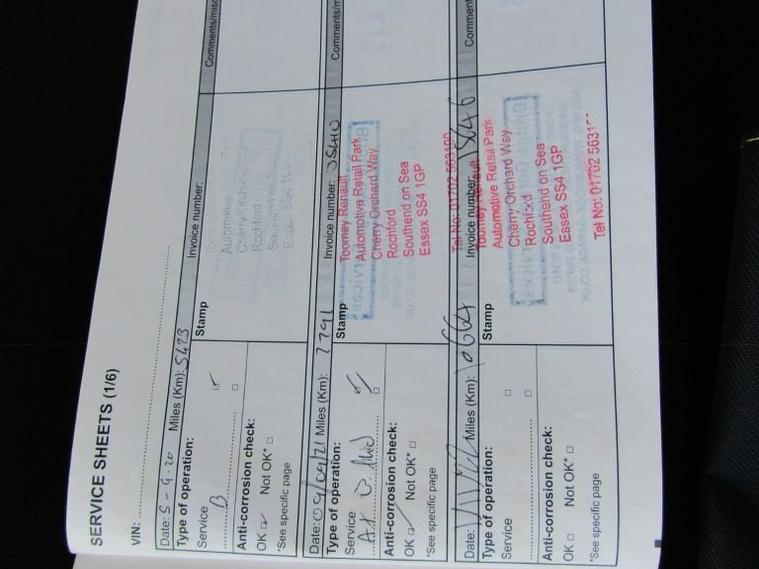 SERVICE SHEETS (1/6)
VIN:
Date: 5-9-20 Miles (Km): 5423 Invoice number: Comments/misc
Type of operation: Stamp
Service
B
Automotive Retail Park
Cherry Orchard Way
Rochford
Southend on Sea
Essex SS4 1GP
Anti-corrosion check:
OK Not OK*
*See specific page
Date: 09/09/21 Miles (Km): 7791 Invoice number: Comments/m
Type of operation: Stamp
Service
Toomey Renault
Automotive Retail Park
Cherry Orchard Way
Rochford
Southend on Sea
Essex SS4 1GP
Tel No: 01702 563100
Anti-corrosion check:
OK Not OK*
*See specific page
Date: Miles (Km): Invoice number: Comment
Type of operation: Stamp
Service
Toomey Renault
Automotive Retail Park
Cherry Orchard Way
Rochford
Southend on Sea
Essex SS4 1GP
Tel No: 01702
Anti-corrosion check:
OK Not OK*
*See specific page